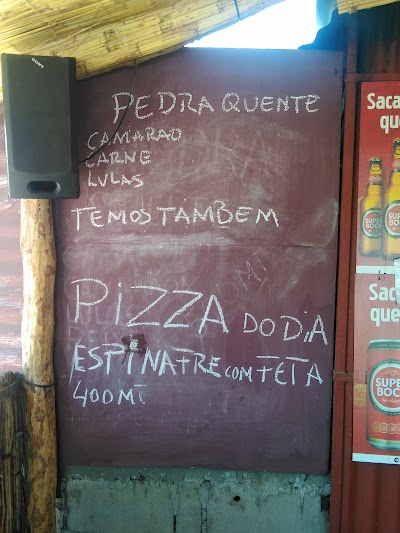 SONY
PEDRA QUENTE
CAMARAO
CARNE
LULAS
TEMOS TAMBEM
PIZZA DO DIA
ESPINAFRE COM FETA
400MT
Saca
que
SUPER
BOCK
Sac
que
SUPER
BOCK